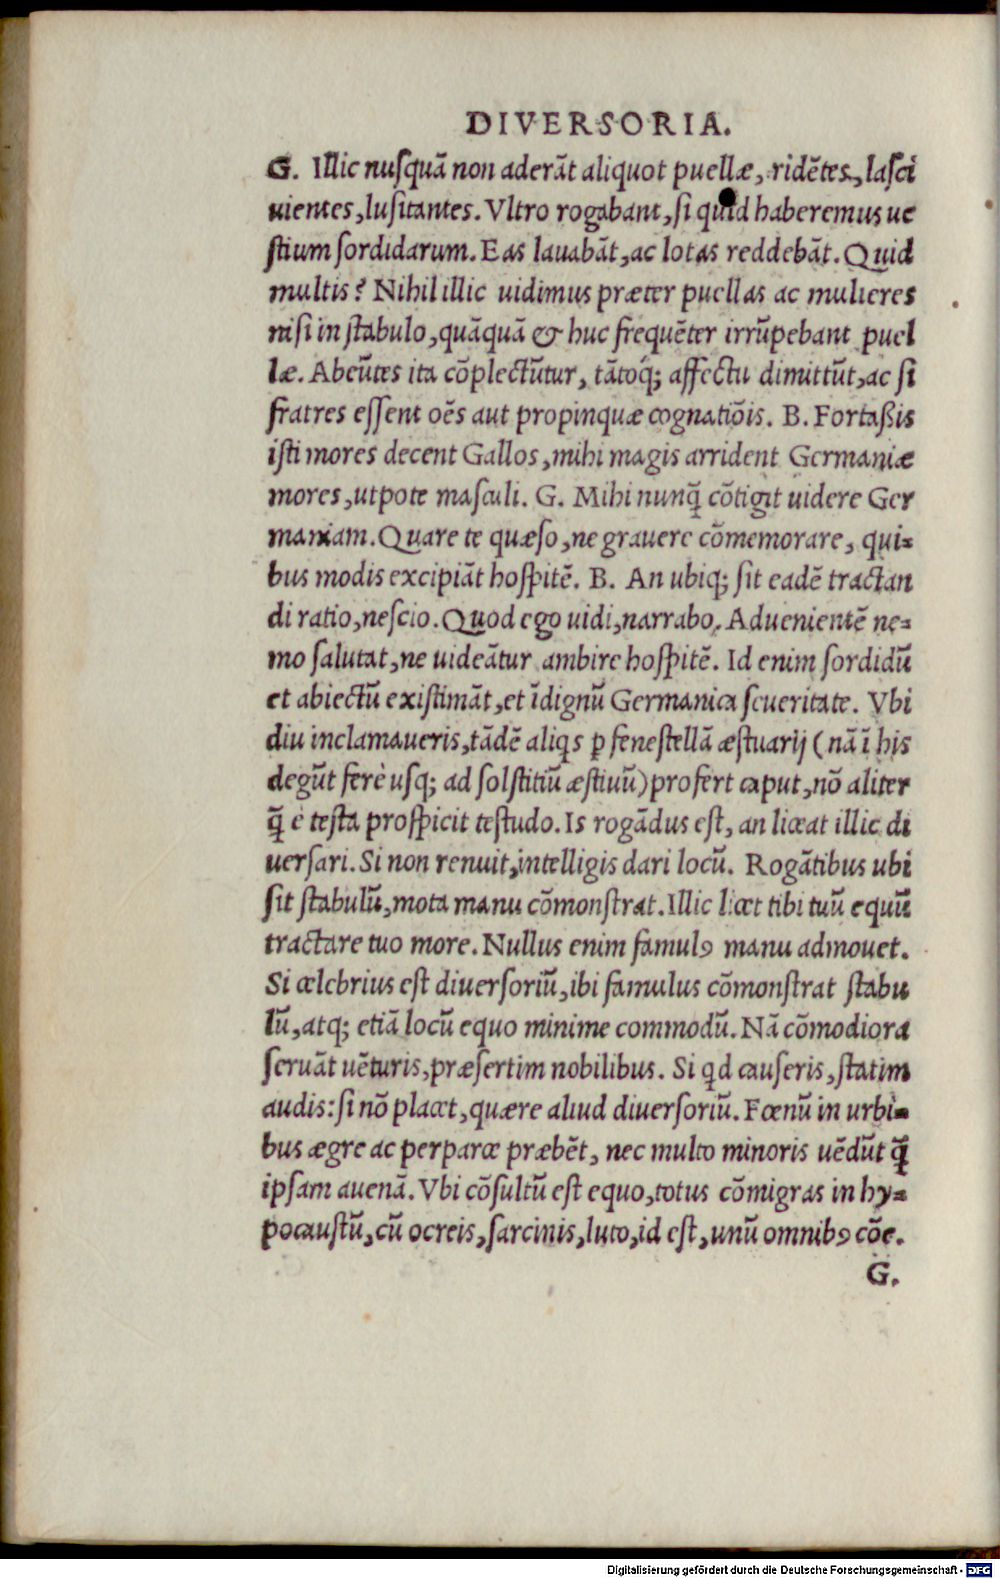 DIVERSORIA.
G. Illic nusquā non aderāt aliquot puellæ, ridētes, lasci
uientes, lusitantes. Vltro rogabant, si quid haberemus ue
stium sordidarum. Eas lauabāt, ac lotas reddebāt. Quid
multis? Nihil illic uidimus præter puellas ac mulieres
nisi in stabulo, quāquā & huc frequēter irrūpebant puel
læ. Abeūtes ita cōplectūtur, tātoq́; affectu dimittūt, ac si
fratres essent oēs aut propinquæ cognatiōis. B. Fortaßis
isti mores decent Gallos, mihi magis arrident Germaniæ
mores, utpote masculi. G. Mihi nunq̄ cōtigit uidere Ger
maniam. Quare te quæso, ne grauere cōmemorare, qui-
bus modis excipiāt hospitē. B. An ubiq; sit eadē tractan
di ratio, nescio. Quod ego uidi, narrabo. Aduenientē ne-
mo salutat, ne uideātur ambire hospitē. Id enim sordidū
et abiectū existimāt, et īdignū Germanica seueritate. Vbi
diu inclamaueris, tādē aliqs ꝑ fenestellā æstuarij (nā ī his
degūt ferè usq; ad solstitiū æstiuū) profert caput, nō aliter
q̄ e testa prospicit testudo. Is rogādus est, an liceat illic di
uersari. Si non renuit, intelligis dari locū. Rogātibus ubi
sit stabulū, mota manu cōmonstrat. Illic licet tibi tuū equū
tractare tuo more. Nullus enim famulꝰ manu admouet.
Si celebrius est diuersoriū, ibi famulus cōmonstrat stabu
lū, atq; etiā locū equo minime commodū. Nā cōmodiora
seruāt uēturis, præsertim nobilibus. Si qd causeris, statim
audis: si nō placet, quære aliud diuersoriū. Fœnū in urbi-
bus ægre ac perparce præbēt, nec multo minoris uēdūt q̄
ipsam auenā. Vbi cōsultū est equo, totus cōmigras in hy-
pocaustū, cū ocreis, sarcinis, luto, id est, unū omnibꝰ cōe.
G.
Digitalisierung gefördert durch die Deutsche Forschungsgemeinschaft - DFG